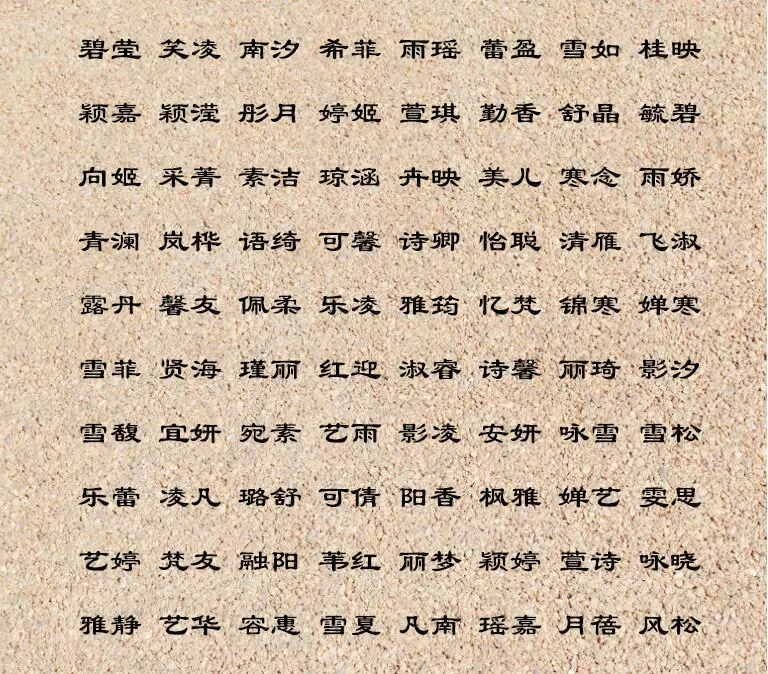 碧莹 笑凌 南汐 希菲 雨瑶 蕾盈 雪如 桂映
颖嘉 颖滢 彤月 婷姬 萱琪 勤香 舒晶 毓碧
向姬 采菁 素洁 琼涵 卉映 美儿 寒念 雨娇
青澜 岚桦 语绮 可馨 诗卿 怡聪 清雁 飞淑
露丹 馨友 佩柔 乐凌 雅筠 忆梵 锦寒 婵寒
雪菲 贤海 瑾丽 红迎 淑睿 诗馨 丽琦 影汐
雪馥 宜妍 宛素 艺雨 影凌 安妍 咏雪 雪松
乐蕾 凌凡 璐舒 可倩 阳香 枫雅 婵艺 雯思
艺婷 梵友 融阳 苇红 丽梦 颖婷 萱诗 咏晓
雅静 艺华 容惠 雪夏 凡南 瑶嘉 月蓓 风松